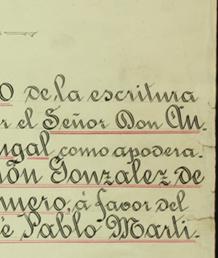 O de la escritura
or el Señor Don An
ugal como apodera.
món Gonzalez de
mero, á favor del
é Pablo Marti-